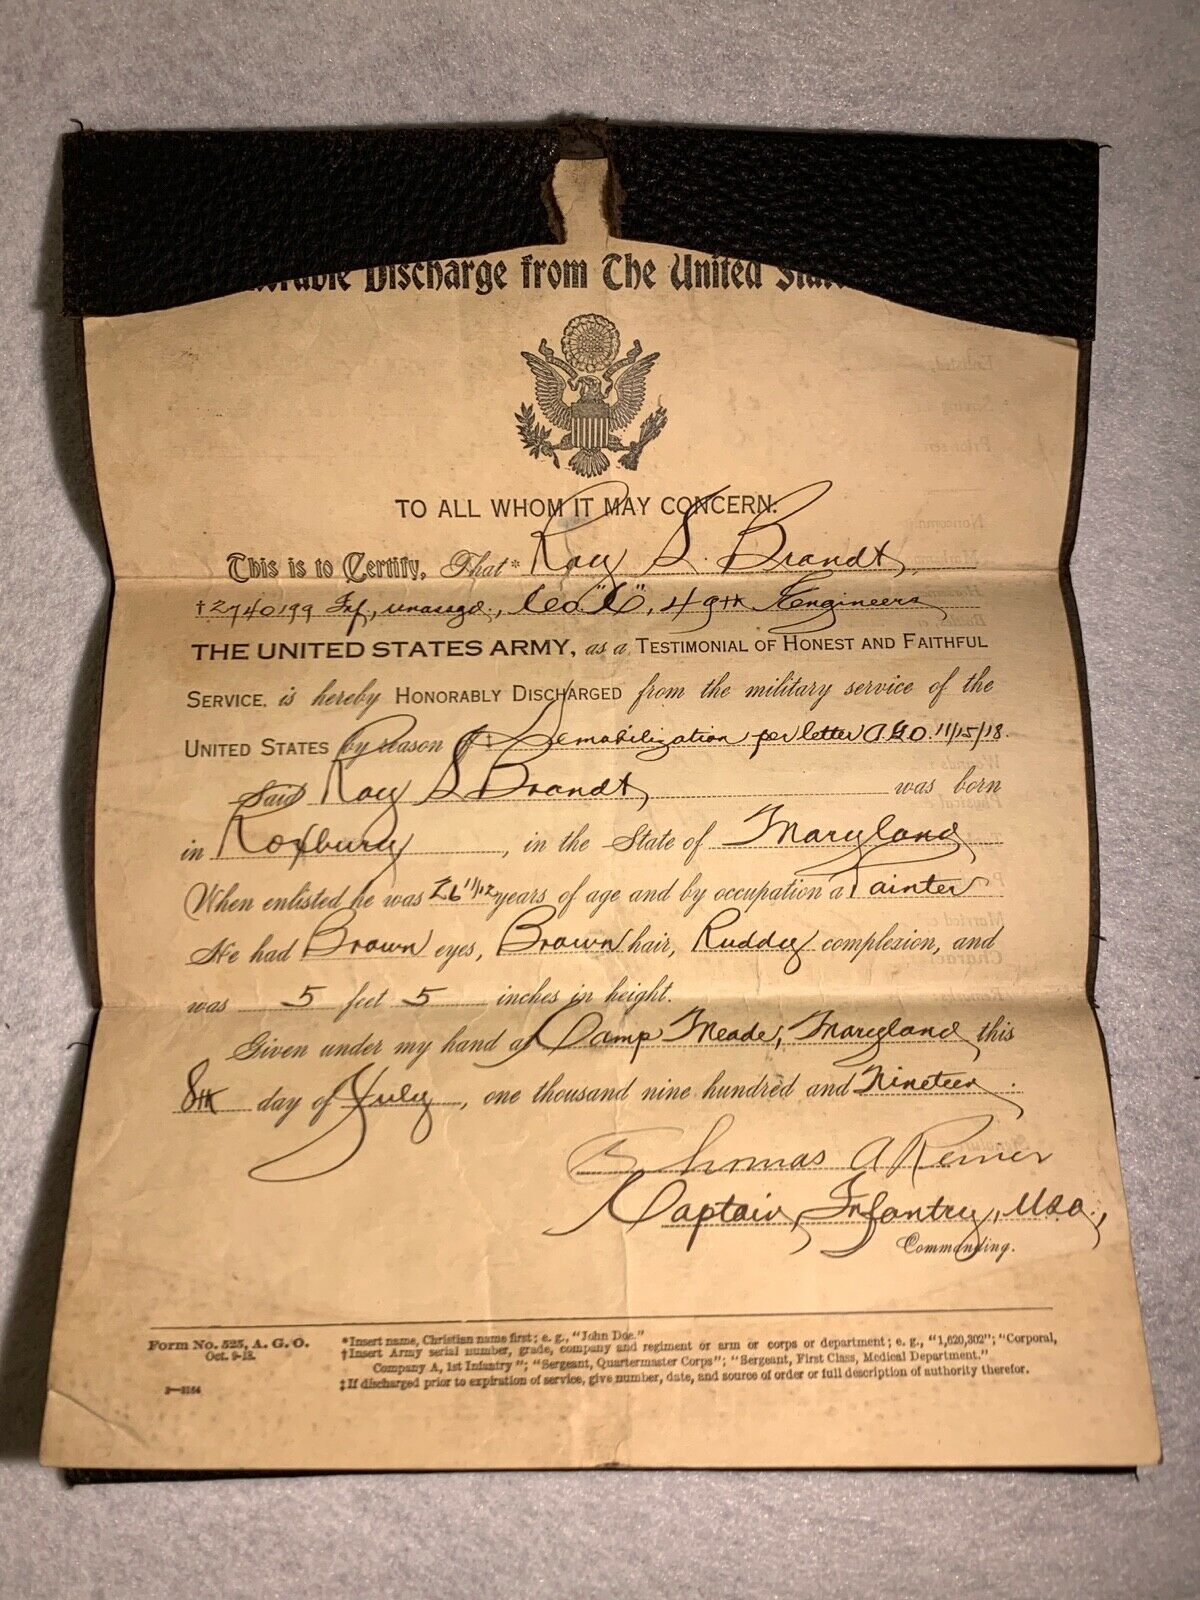 orable Discharge from The United Stat
TO ALL WHOM IT MAY CONCERN:
This is to Certify, That* Ray S. Brandt,
†2740199 Inf, unasgd., Co. "C", 49th Engineers
THE UNITED STATES ARMY, as a TESTIMONIAL OF HONEST AND FAITHFUL
SERVICE, is hereby HONORABLY DISCHARGED from the military service of the
UNITED STATES by reason of‡ Demobilization per letter A.G.O. 11/15/18.
Said Ray S Brandt, was born
in Roxbury, in the State of Maryland
When enlisted he was 26 11/12 years of age and by occupation a Painter
He had Brown eyes, Brown hair, Ruddy complexion, and
was 5 feet 5 inches in height.
Given under my hand at Camp Meade, Maryland this
8th day of July, one thousand nine hundred and Nineteen.
Thomas A
Captain, Infantry, U.S.A.,
Commanding.
Form No. 525, A. G. O.
Oct. 9-18.
3—3164
*Insert name, Christian name first; e. g., "John Doe."
†Insert Army serial number, grade, company and regiment or arm or corps or department; e. g., "1,620,302"; "Corporal,
Company A, 1st Infantry"; "Sergeant, Quartermaster Corps"; "Sergeant, First Class, Medical Department."
‡If discharged prior to expiration of service, give number, date, and source of order or full description of authority therefor.